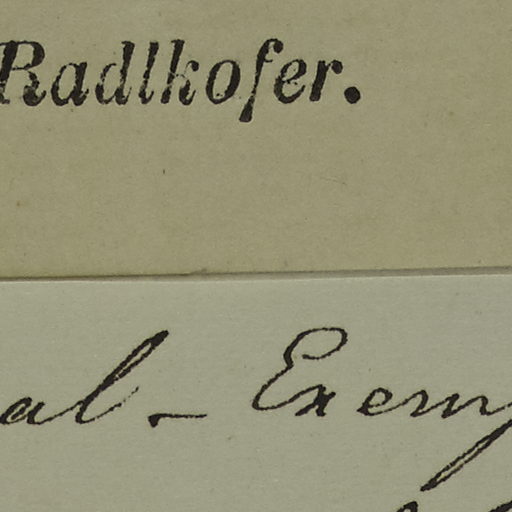 Radlkofer.
al - Exemp